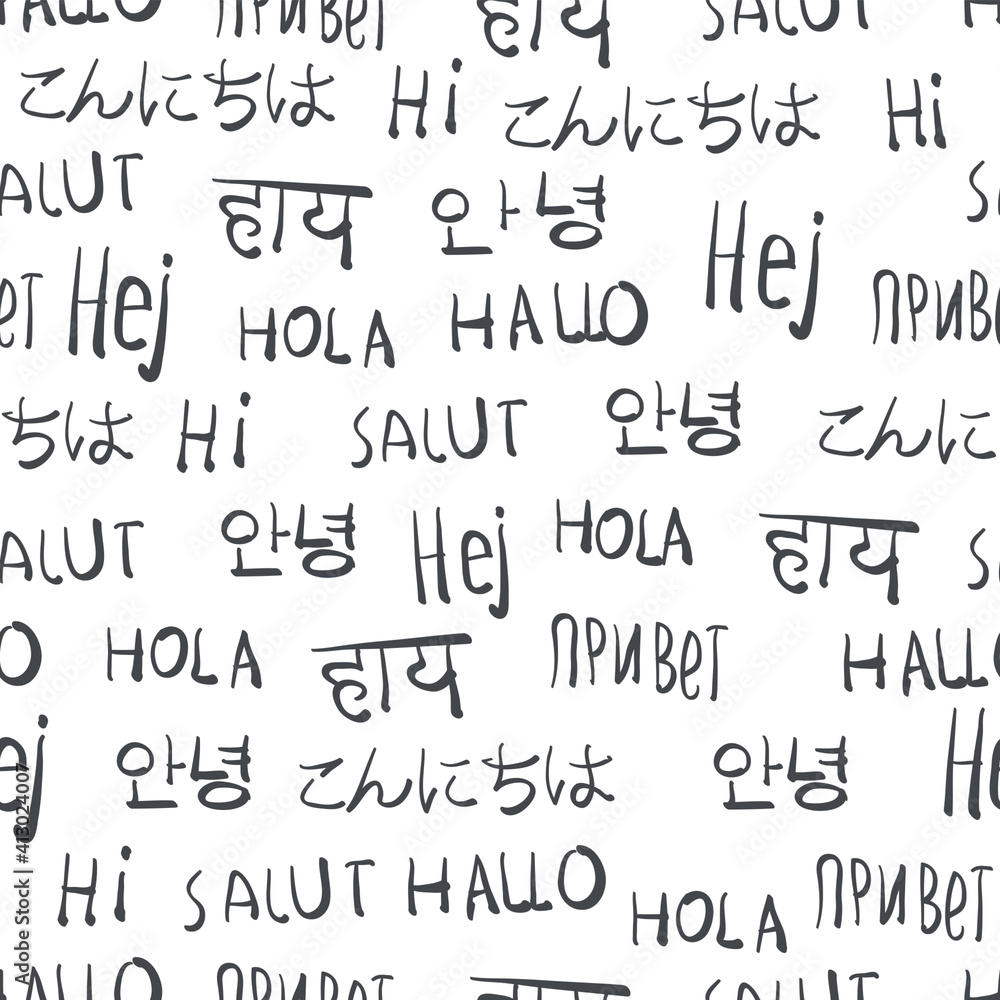 HALLO ПРИВЕТ हाय SALUT H
こんにちは Hi こんにちは Hi
SALUT हाय 안녕 Hej S
ВЕТ Hej HOLA HALLO ПРИВЕ
ちは Hi SALUT 안녕 こんに
ALUT 안녕 Hej HOLA हाय S
O HOLA हाय ПРИВЕТ HALLO
ej 안녕 こんにちは 안녕 He
Hi SALUT HALLO HOLA ПРИВЕТ
HALLO ПРИВЕТ SALUT
Adobe Stock | #413024007